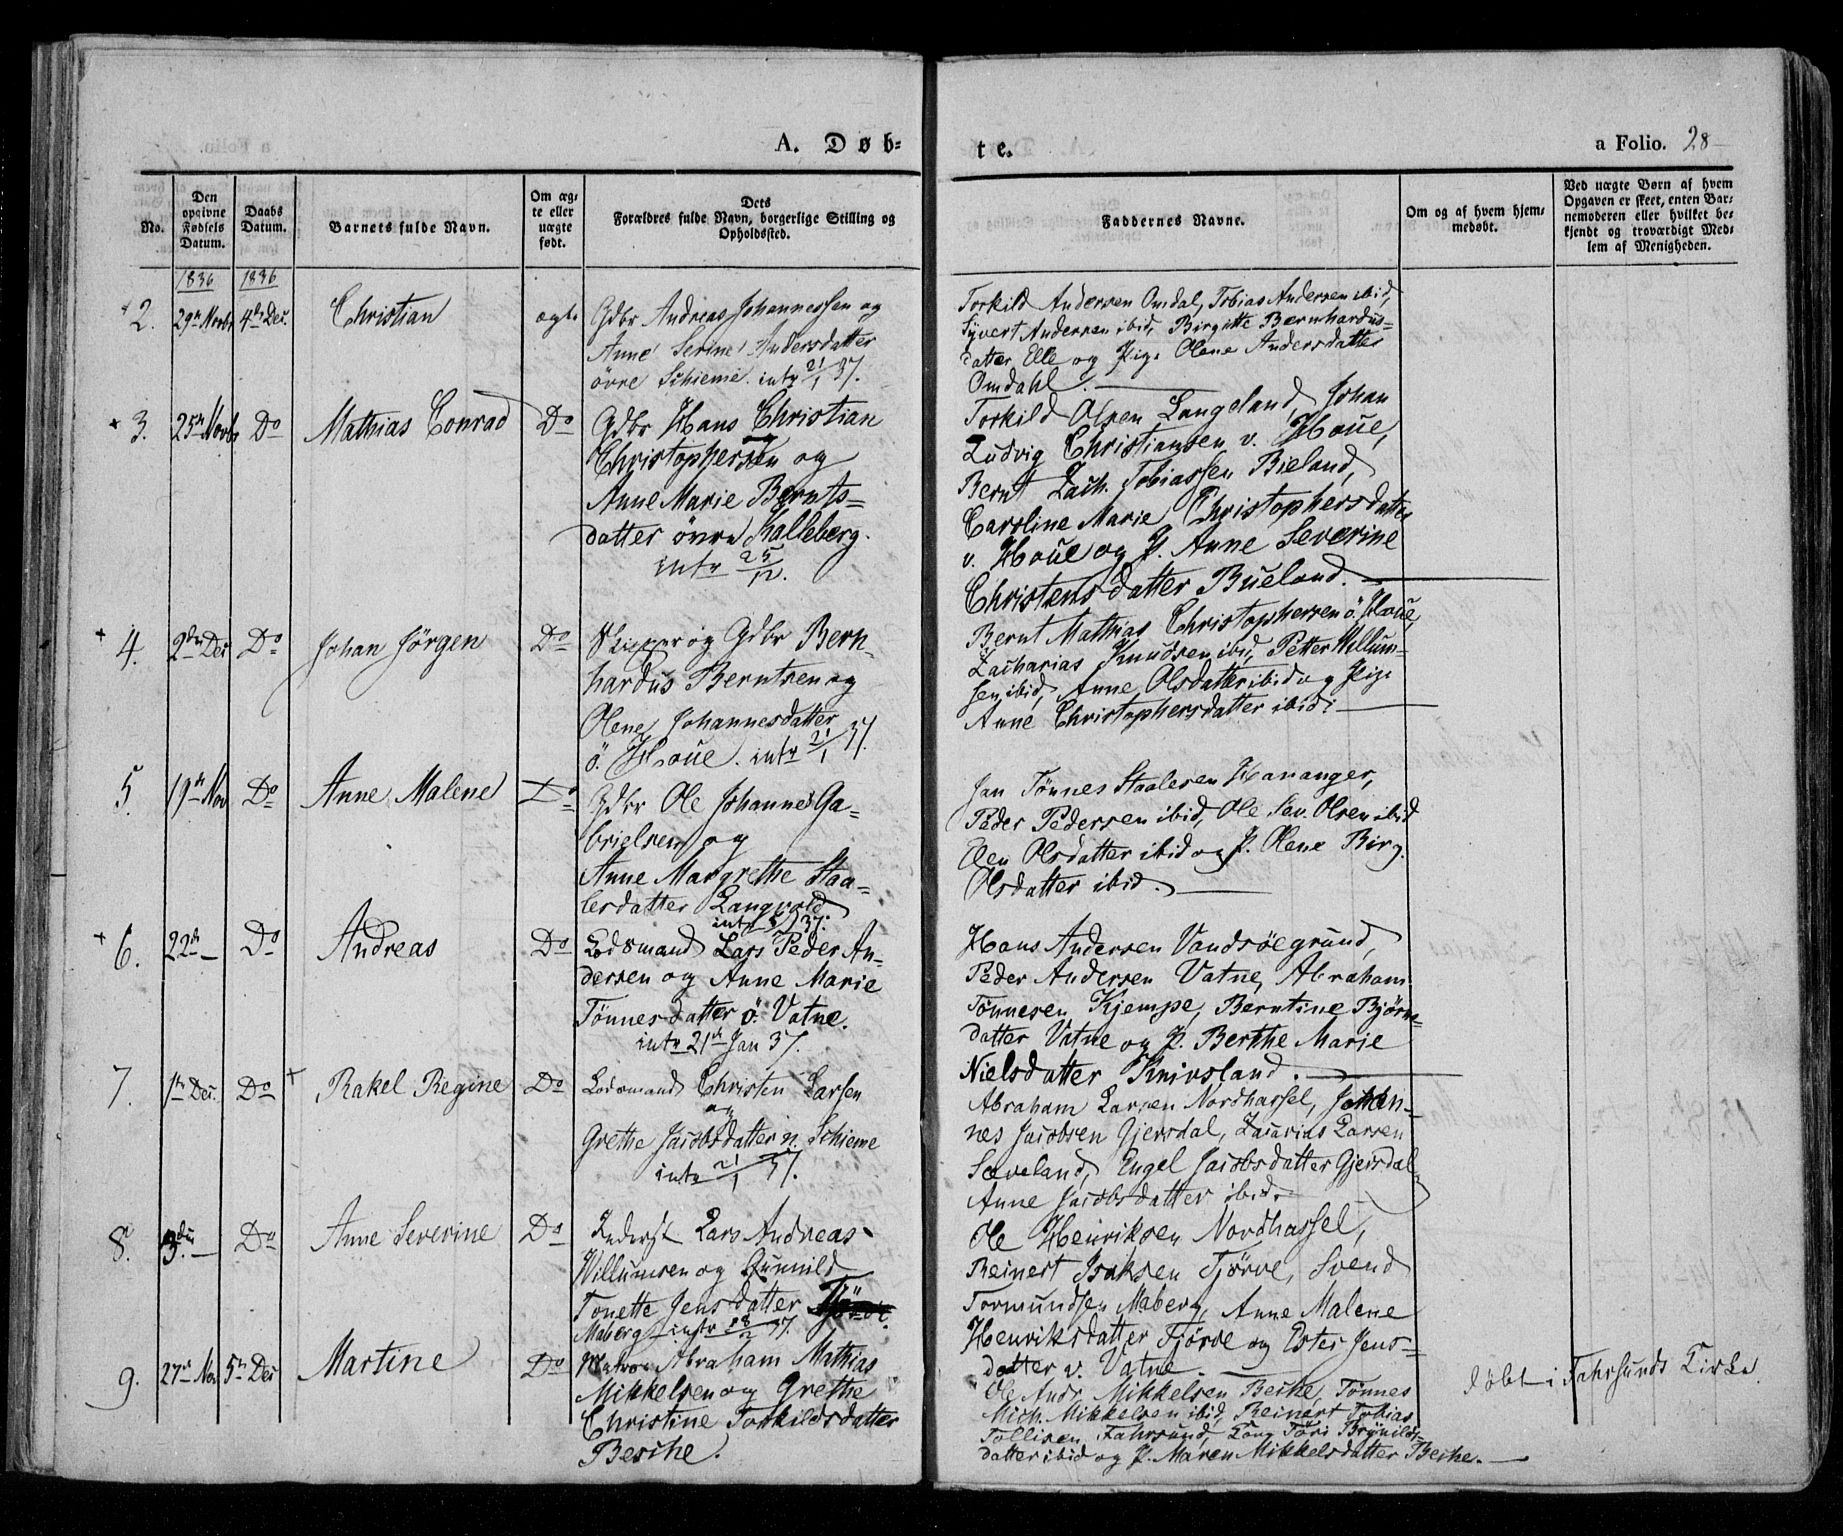 A. Døb-
te.
a Folio. 28
No.
Den opgivne Fødsels Datum.
Daabs Datum.
Barnets fulde Navn.
Om æg-te eller uægte født.
Dets
Forældres fulde Navn, borgerlige Stilling og
Opholdssted.
Faddernes Navne.
Om og af hvem hjem-
medøbt.
Ved uægte Børn af hvem
Opgaven er skeet, enten Bar-
nemoderen eller hvilket be-
kjendt og troværdigt Med-
lem af Menigheden.
1836 1836
2. 29n Novbr 4de Dec. Christian ægte
Gdbr Andreas Johannessen og
Anne Serine Andersdatter
övre Schieme. intr 21/1 37.
Torkild Andersen Omdal, Tobias Andersen ibid,
Syvert Andersen ibid, Birgitte Bernhardus-
datter Elle og Pige Olene Andersdatter
Omdahl.
3. 25n Novbr Do Mathias Conrad Do
Gdbr Hans Christian
Christophersen og
Anne Marie Bernts-
datter övre Kalleberg.
intr 25/12.
Torkild Olsen Langeland, Johan
Ludvig Christiansen v. Houe,
Bernt Zach. Tobiassen Bieland,
Caroline Marie Christophersdatter
v. Houe og P. Anne Severine
Christensdatter Bueland.
4. 2den Dec Do Johan Jörgen Do
Skipper og Gdbr Bern-
hardus Berntsen og
Olene Johannesdatter
ö. Houe. intr 21/1 37.
Bernt Mathias Christophersen ö. Houe,
Zacharias Knudsen ibid, Petter Willum-
sen ibid, Anne Olsdatter ibid og Pige
Anne Christophersdatter ibid.
5 19n Nov Do Anne Malene Do
Gdbr Ole Johannes Ga-
brielsen og
Anne Margrethe Staa-
lesdatter Langvold
intr 37.
Jan Tönnes Staalesen Hananger,
Peder Pedersen ibid, Ole Sev. Olsen ibid
Elen Olsdatter ibid og P. Olene Birg.
Olsdatter ibid.
6. 22d Do Andreas Do
Lodsmand Lars Peder An-
dersen og Anne Marie
Tönnesdatter ö. Vatne.
intr 21d Jan 37.
Hans Andersen Vandsöegrund,
Peder Andersen Vatne, Abraham
Tönnesen Kjempe, Berntine Björns-
datter Vatne og P. Berthe Marie
Nielsdatter Knivsland.
7. 1n Dec. Do Rakel Regine Do
Lodsmand Christen Larsen
og
Grethe Jacobsdatter n. Schieme
intr 21/1 37.
Abraham Larsen Nordhassel, Johan-
nes Jacobsen Gjersdal, Zacarias Larsen
Sæveland, Engel Jacobsdatter Gjersdal
Anne Jacobsdatter ibid.
8. 3den Do Anne Severine Do
Inderst Lars Andreas
Willumsen og Gunnild
Tonette Jensdatter Tjörve.
Maberg intr 28/2 37.
Ole Henriksen Nordhassel,
Reinert Isaksen Tjörve, Svend
Tormundsen Maberg, Anne Malene
Henriksdatter Tjörve og Ester Jens-
datter v. Vatne
9. 27n Nov 5n Dec Martine Do
Matros Abraham Mathias
Mikkelsen og Grethe
Christine Torkildsdatter
Besche.
Ole Andr. Mikkelsen Beche, Tönnes
Mich. Mikkelsen ibid, Reinert Tobias
Tollisen Fahrsund, Töri Brynilds-
datter ibid og P. Maren Mikkelsdatter Beche.
döbt i Fahrsunds Kirke.